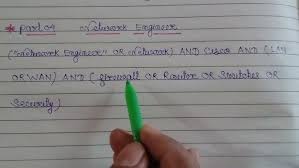 * Part 04 Network Engineer
("Network Engineer" OR Network) AND Cisco AND (LAN
OR WAN) AND (firewall OR Router OR Switches OR
Security)